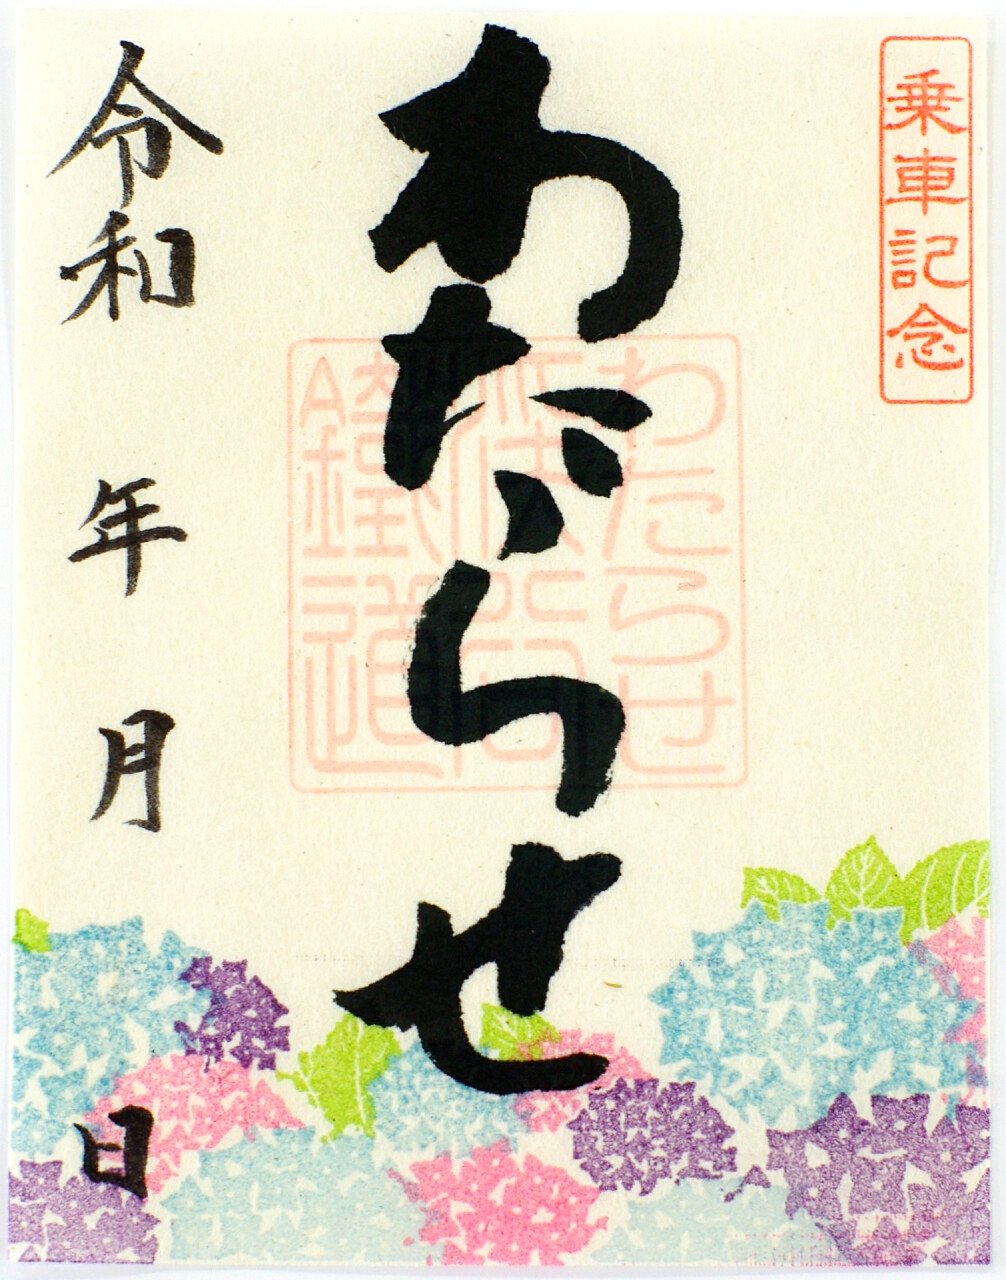 乗車記念
わたらせ
わたらせ
渓谷
鐵道
令和 年 月 日